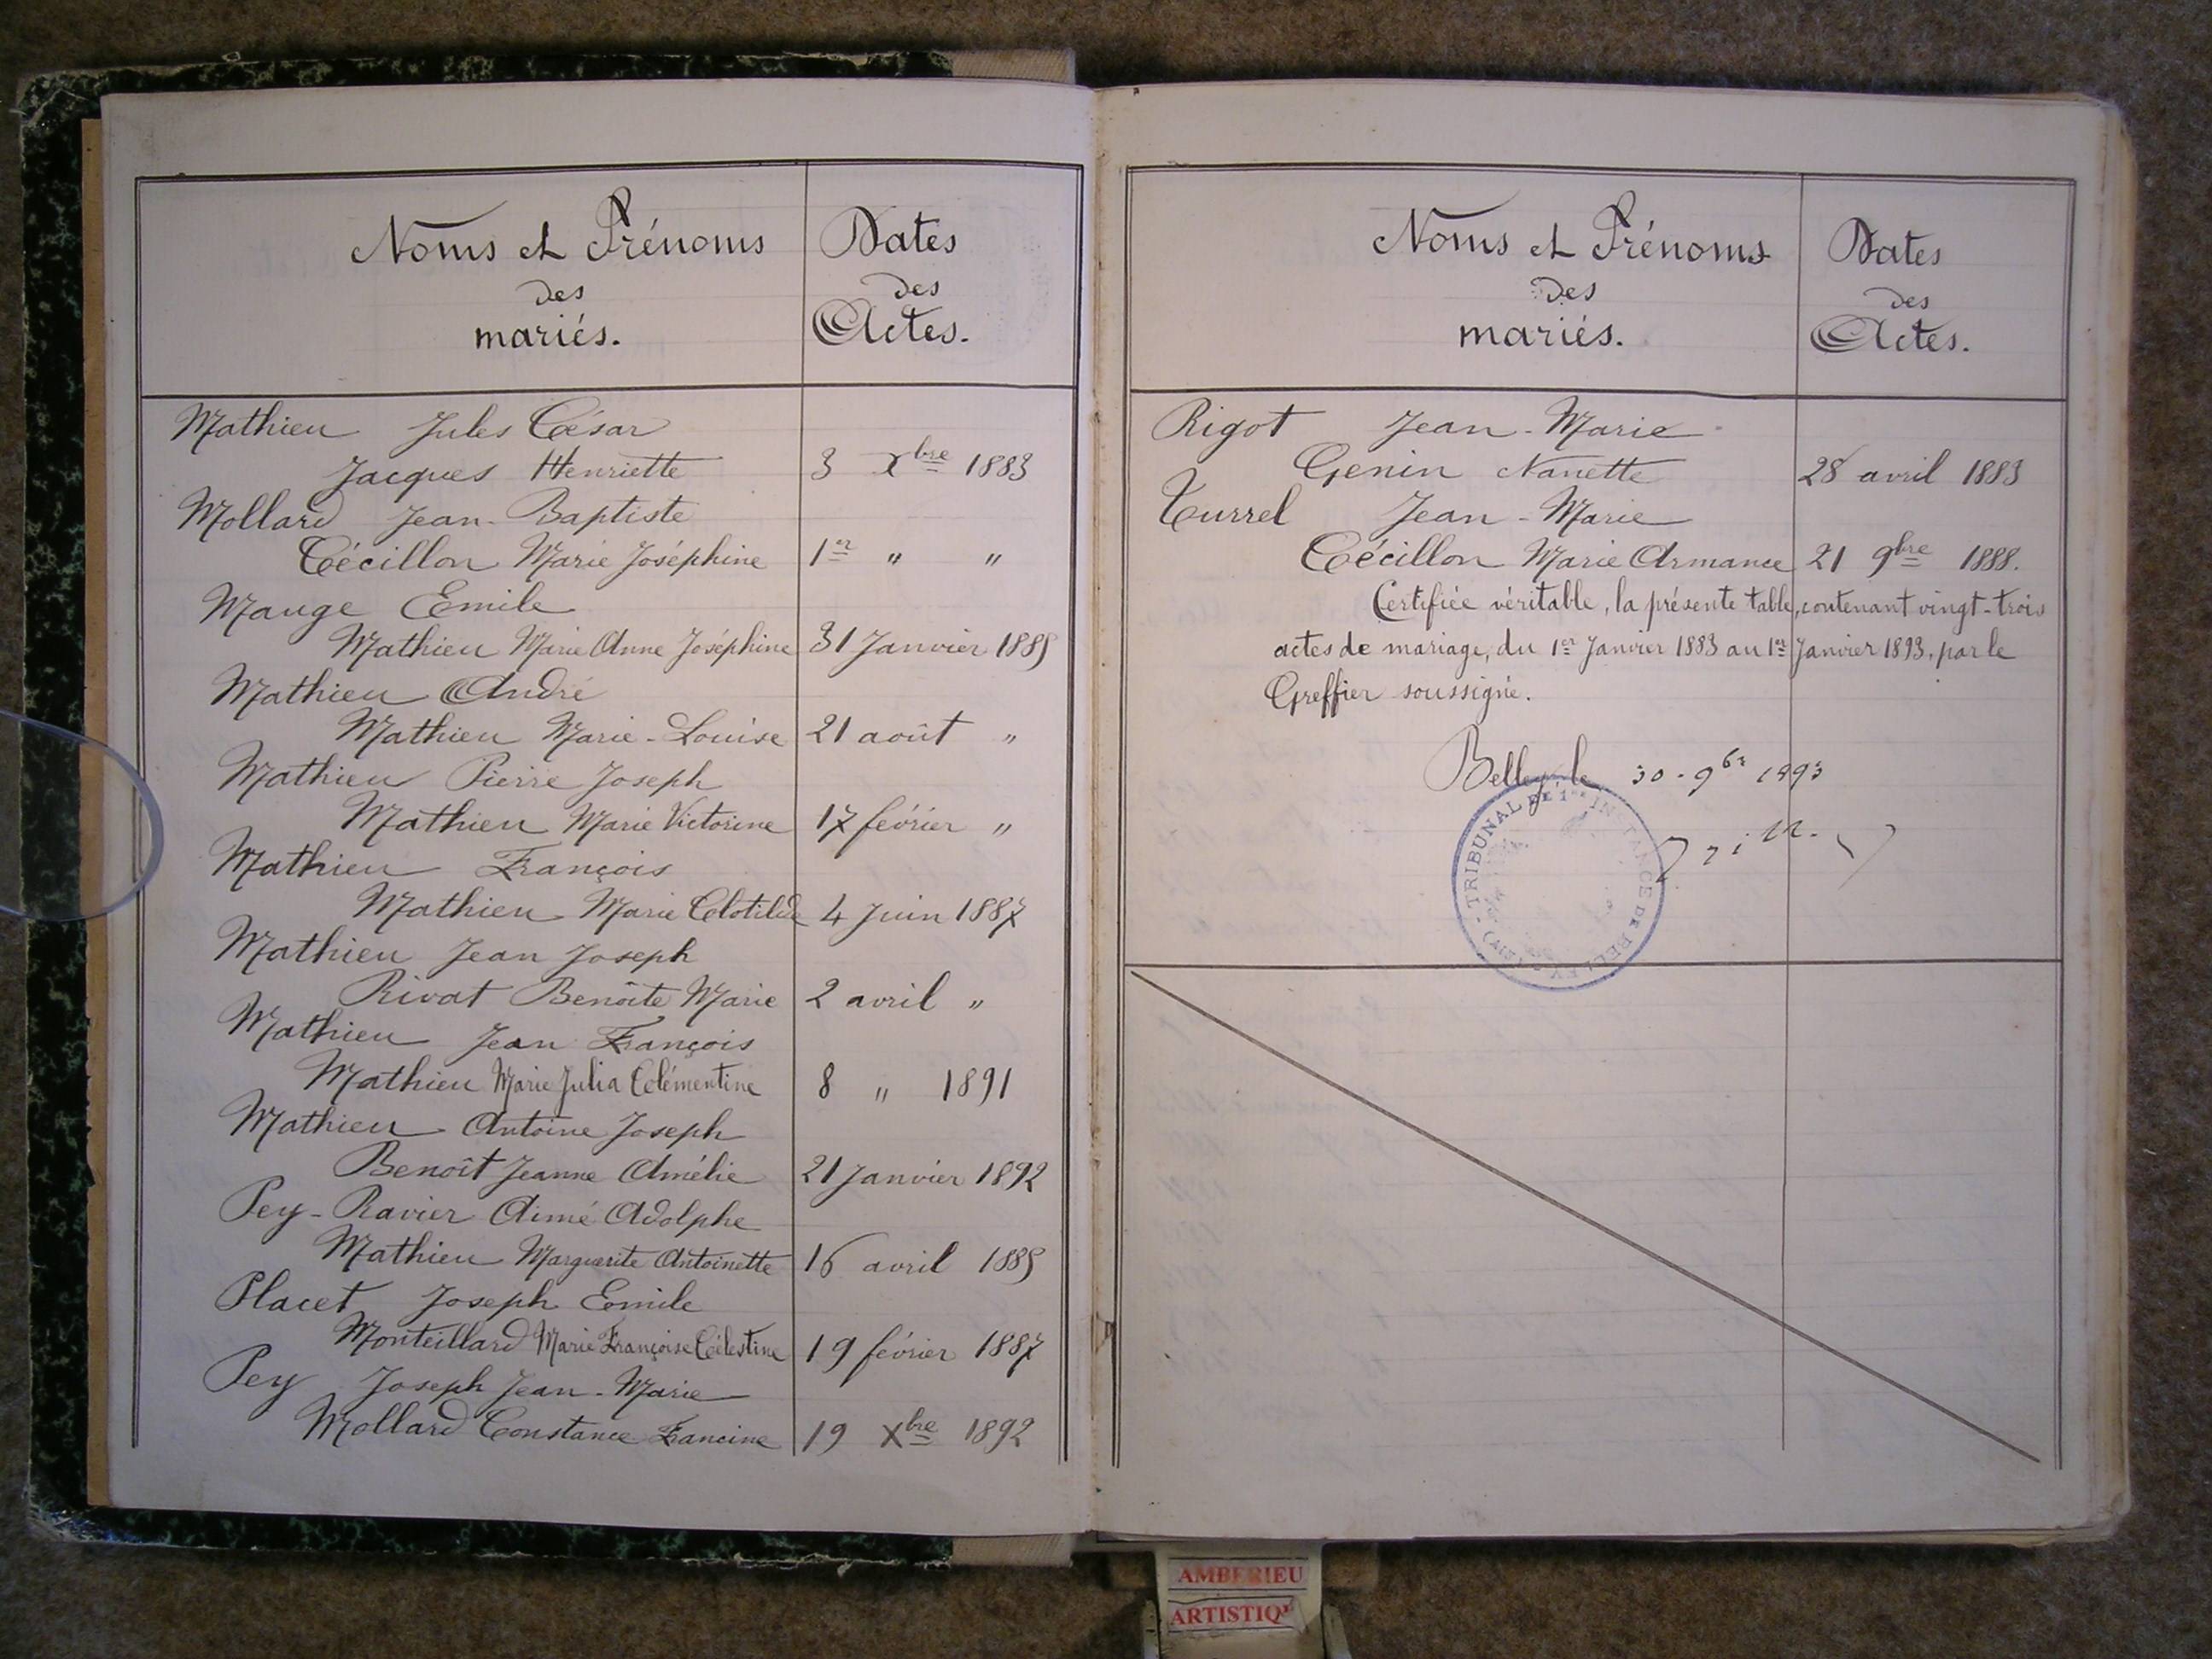 Noms et Prénoms
des
mariés.
Dates
des
Actes.
Mathieu Jules César
Jacques Henriette 3 Xbre 1883
Mollard Jean-Baptiste
Cécillon Marie Joséphine 1er " "
Mauge Emile
Mathieu Marie Anne Joséphine 31 Janvier 1885
Mathieu André
Mathieu Marie-Louise 21 août "
Mathieu Pierre Joseph
Mathieu Marie Victorine 17 février "
Mathieu François
Mathieu Marie Clotilde 4 Juin 1887
Mathieu Jean Joseph
Rivat Benoîte Marie 2 avril "
Mathieu Jean François
Mathieu Marie Julia Clémentine 8 " 1891
Mathieu Antoine Joseph
Benoît Jeanne Amélie 21 Janvier 1892
Pey-Ravier Aimé Adolphe
Mathieu Marguerite Antoinette 16 avril 1885
Placet Joseph Emile
Monteillard Marie Françoise Célestine 19 février 1887
Pey Joseph Jean-Marie
Mollard Constance Francine 19 Xbre 1892
Noms et Prénoms
des
mariés.
Dates
des
Actes.
Rigot Jean-Marie
Genin Nanette 28 avril 1883
Turrel Jean-Marie
Cécillon Marie Armance 21 9bre 1888.
Certifiée véritable, la présente table, contenant vingt-trois
actes de mariage, du 1er Janvier 1883 au 1er Janvier 1893, par le
Greffier soussigné.
Belley, le 30-9br 1893
TRIBUNAL DE 1re INSTANCE DE BELLEY (AIN)
AMBERIEU
ARTISTIQ